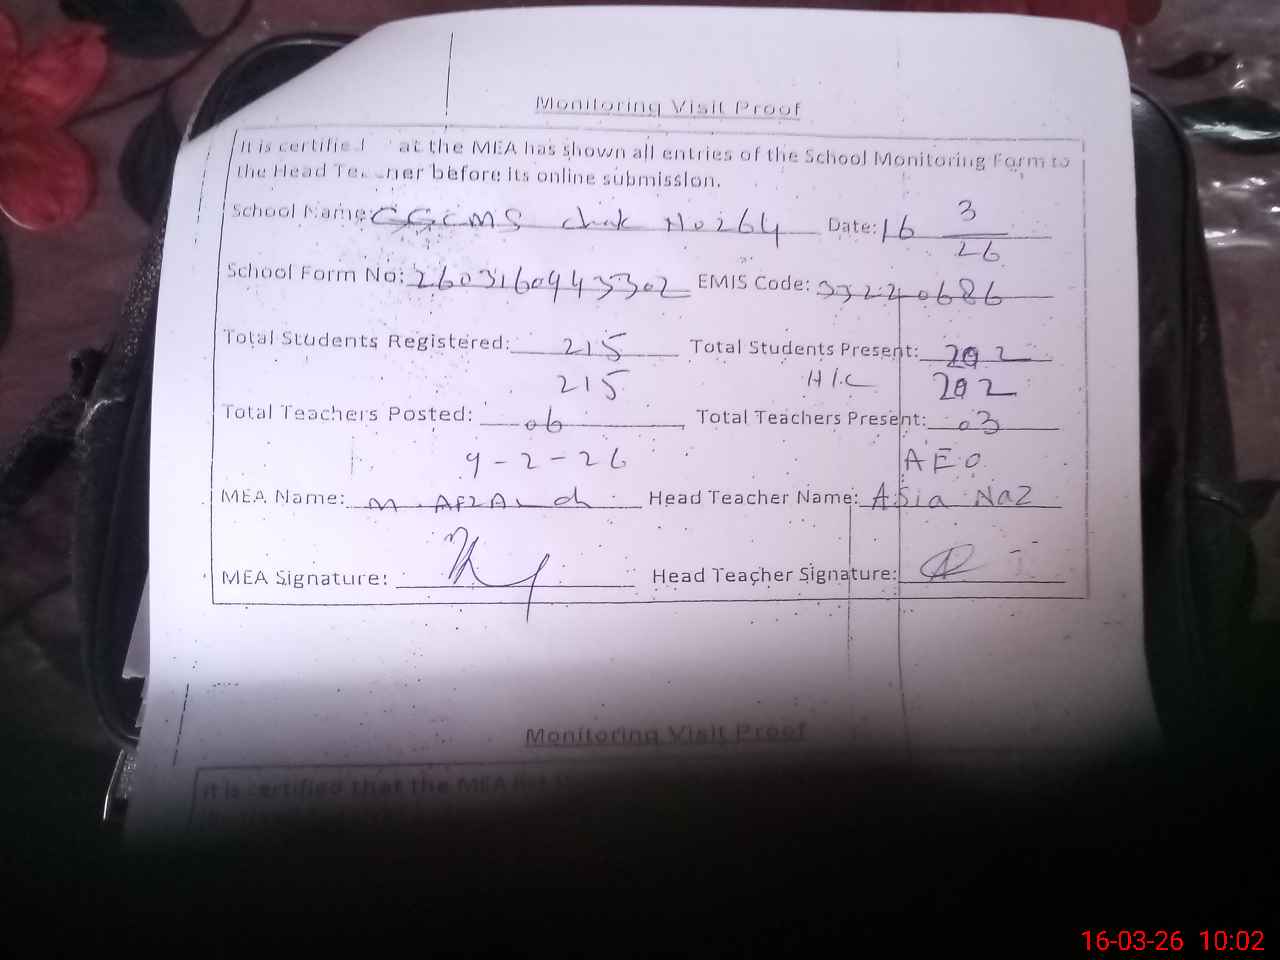 Monitoring Visit Proof
It is certified at the MEA has shown all entries of the School Monitoring Form to
the Head Teacher before its online submission.
School Name: GGCMS chak No 264 Date: 16 3/26
School Form No: 260316094 EMIS Code: 33220686
Total Students Registered: 215 Total Students Present: 202
215 H/C 202
Total Teachers Posted: 06 Total Teachers Present: 03
9-2-26 AEO
MEA Name: M. Head Teacher Name: Asia Naz
MEA Signature: Head Teacher Signature:
Monitoring Visit Proof
It is certified that the MEA has
16-03-26 10:02